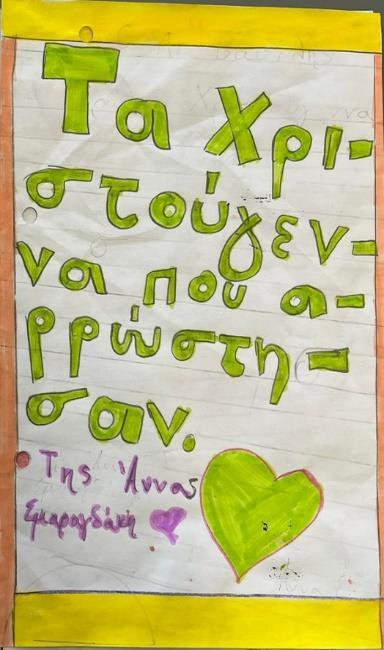 Τα Χρι-
στούγεν-
να που α-
ρρώστη-
σαν.
Της Άννας
Σμαραγδάκη